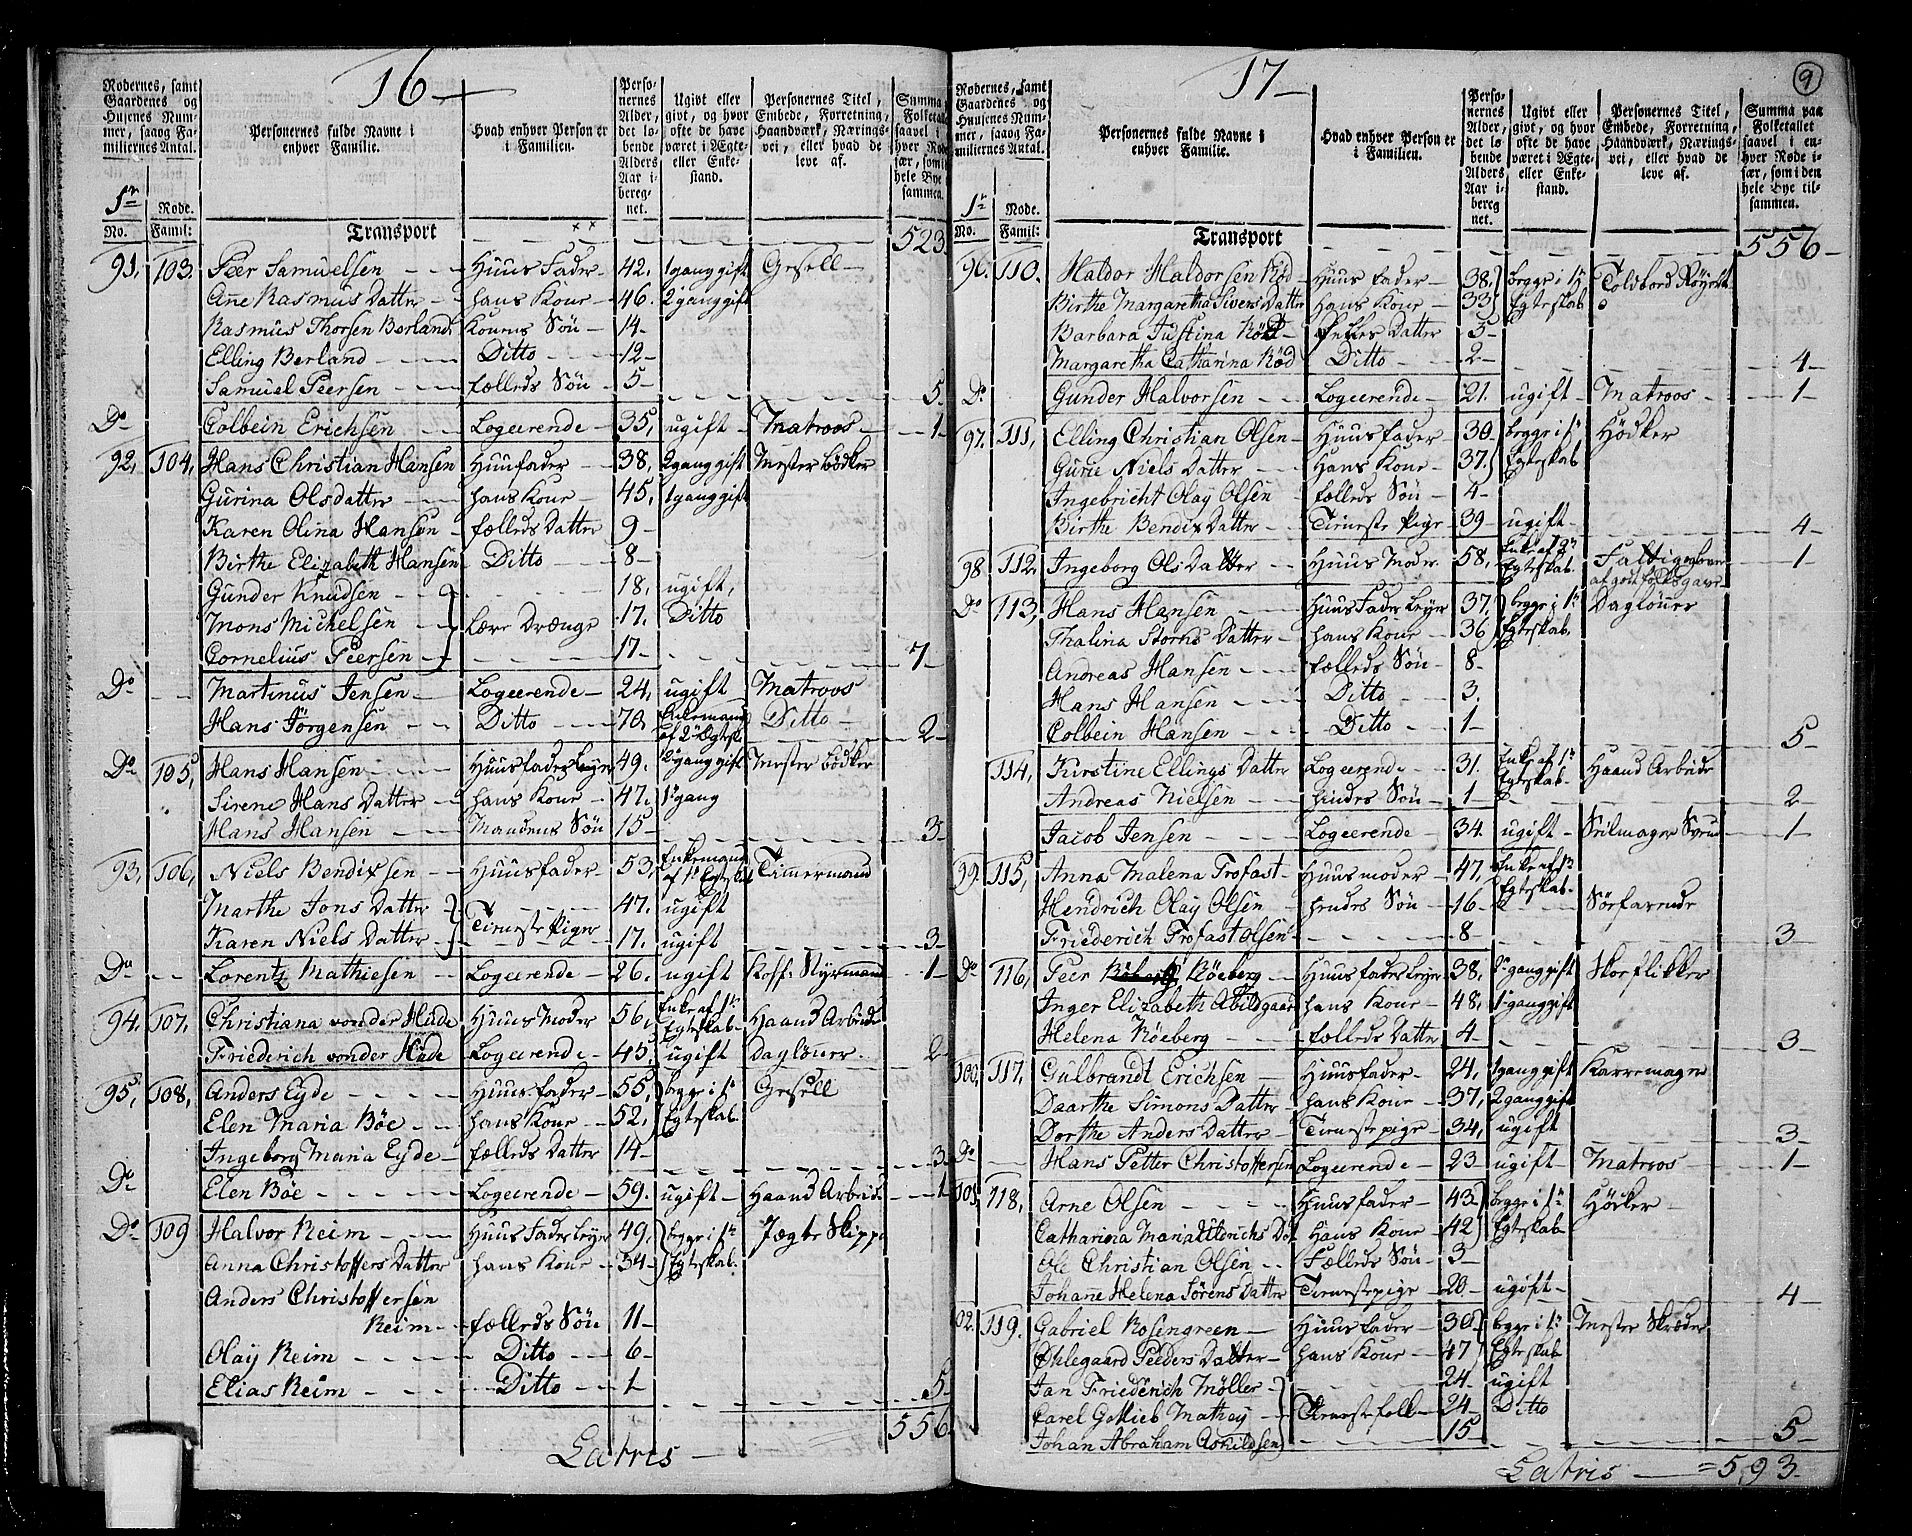 16
Rodernes, samt Gaardenes og Husenes Nummer, saaog Familiernes Antal.
Personernes fulde Navne i enhver Familie.
Hvad enhver Person er i Familien.
Personernes Alder, det løbende Alders Aar iberegnet.
Ugivt eller givt, og hvor ofte de have været i Ægte- eller Enkestand.
Personernes Titel, Embede, Forretning, Haandværk, Næringsvei, eller hvad de leve af.
Summa Folketallet saavel i hver Rode især, som i hele Bye sammen.
1r Rode.
No. Famil:
Transport - - - 523
91. 103. Peer Samuelsen - - - Huus Fader - 42. 1gang gift Gesell -
Ane Rasmus Datter - hans Kone - 46. 2gang gift
Rasmus Thorsen Berland Konens Sön - 14 -
Elling Berland - - - Ditto - - 12 -
Samuel Peersen - - - fælleds Sön - 5 - - - 5
Do Colbein Erichsen - - Logeerende - 35, ugift - Matroos - - 1 -
92, 104, Hans Christian Hansen Huusfader - 38, 2gang gift Mester Bödker
Gurina Olsdatter - - hans Kone - 45, 1gang gift
Karen Olina Hansen - fælleds Datter 9 -
Birthe Elizabeth Hansen - Ditto - 8 -
Gunder Knudsen - - - - 18, ugift,
Mons Michelsen - - Lære Drænge 17. Ditto
Cornelius Peersen - - - - 17 - - - 7 -
Do - - Martinus Jensen - Logeerende - 24, ugift - Matroos
Hans Jörgensen - - Ditto - - 70, Enkemand af 2 Egtesk. Ditto - 2 -
Do 105, Hans Hansen - - - Huusfader Leyer 49. 2gang gift Mester Bödker
Sirene Hans Datter - hans Kone - 47. 1gang
Hans Hansen - - Mandens Sön 15 - - - 3 -
93, 106, Niels Bendixsen - Huusfader - 53, Enkemand af 1 Egteskab Timermand
Marthe Jons Datter - - - 47. ugift
Tieneste Piger
Karen Niels Datter - - - 17. ugift - - - 3 -
Do - - Lorentz Mathiesen - Logeerende - 26. ugift Koff: Styrmand - 1 -
94. 107. Christiana von der Hude Huus Moder 56, Enke af 1r Egteskab - Haand Arbeide
Friederich von der Hude - Logeerende - 45, ugift Daglöner. 2 -
95, 108, Anders Eyde - - - - Huusfader - 55, begge i 1 Gesell
Elen Maria Böe - - hans Kone - 52. Egteskab.
Ingeborg Maria Eyde - fælleds Datter 14 - - - 3
Do Elen Böe - - - - Logeerende - 59. ugift - Haand Arbeide - - 1
Do 109 Halvor Reim - - - Huus Fader Leyer 49, begge i 1 Jægte Skipper
Anna Christoffers Datter hans Kone - 34 - Egteskab.
Anders Christoffersen
Reim - - fælleds Sön 11 -
Olay Reim - - - - Ditto - - 6 -
Elias Reim - - - - Ditto - - 1 - - - 5 -
556
Latris -
17 -
9
Rodernes, samt Gaardenes og Husenes Nummer, saaog Familiernes Antal.
Personernes fulde Navne i enhver Familie.
Hvad enhver Person er i Familien.
Personernes Alder, det løbende Alders Aar iberegnet.
Ugivt eller givt, og hvor ofte de have været i Ægte- eller Enkestand.
Personernes Titel, Embede, Forretning, Haandværk, Næringsvei, eller hvad de leve af.
Summa paa Folketallet saavel i enhver Rode især, som i den hele Bye tilsammen.
1r Rode.
No. Famil:
Transport - - - 556 -
96. 110. Haldor Haldorsen Röd - Huus fader - 38, begge i 1 Toldbord
Birthe Margaretha Sivers Datter Hans Kone - 33 Egteskab
Barbara Justina Röd - Fælles Datter 5 -
Margaretha Catharina Röd Ditto - 2 - - - 4 -
Do Gunder Halvorsen - - Logeerende - 21. ugift - Matroos - - 1 -
97. 111, Elling Christian Olsen - Huusfader - 30. begge i 1 Hödker
Gurie Niels Datter - - Hans Kone - 37. Egteskab
Ingebricht Olay Olsen fælleds Sön - 4 -
Birthe Bendix Datter - - Tieneste Pige - 39 - ugift - - - 4 -
98 112. Ingeborg Ols Datter - Huus Moder - 58, Enke af 2n Egteskab. 1 -
af gott folks gaver
Do 113, Hans Hansen - - Huus Fader Leyer 37, begge i 1 Daglöner
Thalina Storms Datter - hans Kone - 36 Egteskab.
Andreas Hansen - - fælleds Sön - 8 -
Hans Hansen - - - Ditto - - 3.
Colbein Hansen - - Ditto - - 1 - - - 5 -
114, Kirstine Ellings Datter Logeerende - 31. Enke af 1 Egteskab - Haand Arbeide
Andreas Nielsen - - hendes Sön - 1 - - - 2 -
Jacob Jensen - - - Logeerende - 34. ugift - Seilmager Svend 1 -
99. 115, Anna Malena Trofast - Huusmoder - 47, Enke af 1 Egteskab -
Hendrich Olay Olsen - hendes Sön - 16 - - - Söefarende
Friederich Trofast Olsen - - - - 8 - - - 3 -
Do 116, Peer Röeberg - - Huusfader Leyer 38, 1gang gift Skoeflikker
Inger Elizabeth Abildgaard hans Kone - 48, 1gang gift
Helena Röeberg - - fælleds Datter 4 - - - 3 -
100, 117, Gulbrandt Erichsen - Huusfader - 24, 1gang gift Karremager
Daarthe Simons Datter - hans Kone - 37, 2gang gift
Dorthe Anders Datter - Tienestepige - 34, ugift - - 3 -
Do - Hans Petter Christoffersen Logeerende - 23 ugift - Matroos - - 1 -
101, 118, Arne Olsen - - - - Huusfader - 43. begge i 1 Höcker -
Catharina Maria Ulerichs Dat Hans Kone - 42 Egteskab
Ole Christian Olsen - - Fælleds Sön - 3 -
Johane Helena Sörens Datter Tienestepige - 20 - ugift - - - 4 -
02. 119. Gabriel Rosengreen - Huusfader - 30 begge i 1 Mester Skræder
Öhlegaard Peeders Datter - hans Kone - 47 Egteskab
Jan Friederich Möller - - - 24 - ugift
Carel Gottlieb Mathey - Tienestefolk - 24 - Ditto
Johan Abraham Askildsen - - - 15 - - - 5 -
Latris - = 593 -